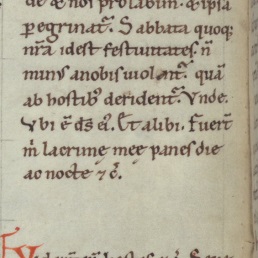 de & noi prolabim. & ipsa
peregrinat̃. Sabbata quoq;
nr̃a idest festiuitates. ñ
min᷒ anobis uiolant̃. quã
ab hostib᷒ derident̃. Vnde.
Vbi ẽ d̃s eī. Et alibi. Fuer̃t
m̃ lacrime mee panes die
ac nocte & c̃.